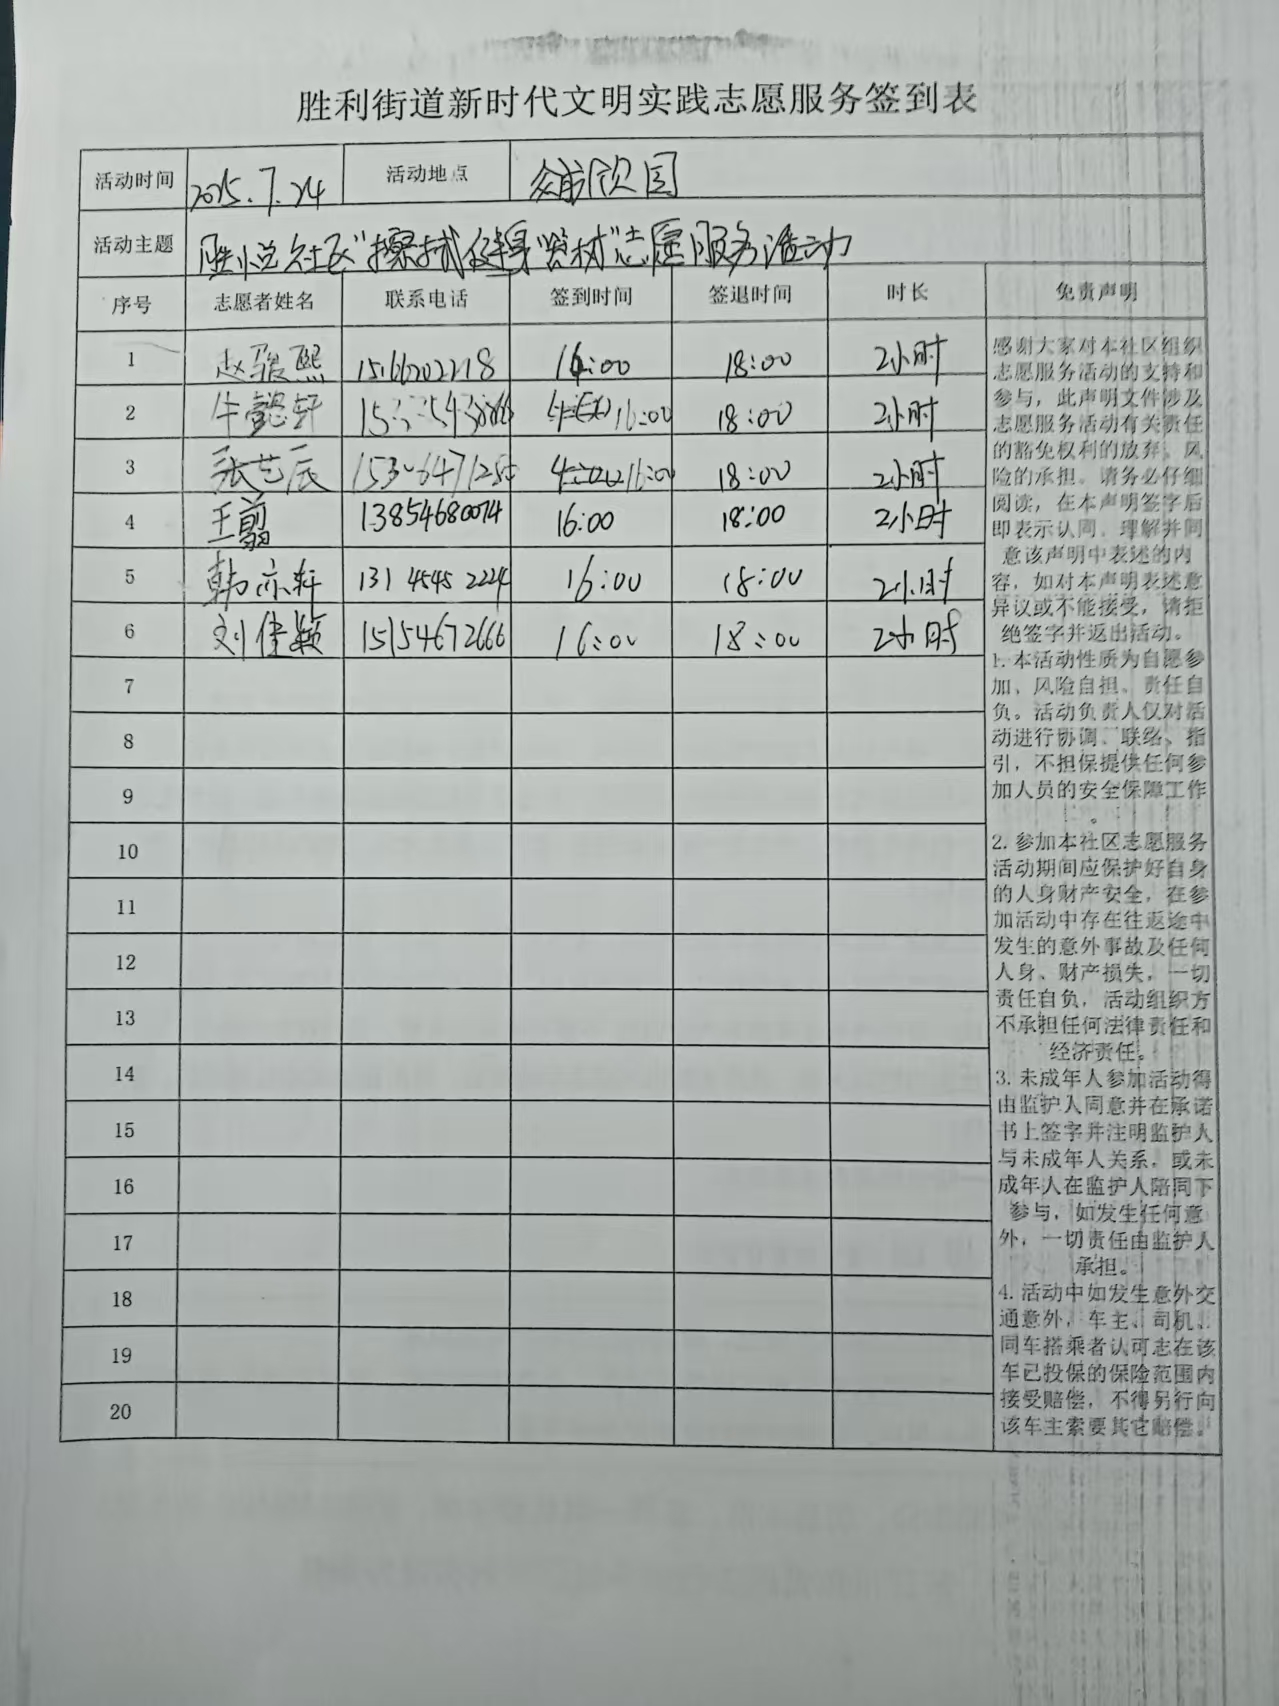 胜利街道新时代文明实践志愿服务签到表
活动时间 2025.7.24 活动地点 欣园
活动主题 胜 社区“擦拭健身器材”志愿服务活动
序号 志愿者姓名 联系电话 签到时间 签退时间 时长 免责声明
1 赵骏熙 15166202218 16:00 18:00 2小时
2 牛懿轩 16:00 18:00 2小时
3 张艺辰 16:00 18:00 2小时
4 王翦 13854680074 16:00 18:00 2小时
5 韩亦轩 131 4545 2224 16:00 18:00 2小时
6 刘倢颖 15154672666 16:00 18:00 2小时
7
8
9
10
11
12
13
14
15
16
17
18
19
20
感谢大家对本社区组织
志愿服务活动的支持和
参与，此声明文件涉及
志愿服务活动有关责任
的豁免权利的放弃，风
险的承担。请务必仔细
阅读，在本声明签字后
即表示认同、理解并同
意该声明中表述的内
容，如对本声明表述意
异议或不能接受，请拒
绝签字并返出活动。
1.本活动性质为自愿参
加、风险自担、责任自
负。活动负责人仅对活
动进行协调、联络、指
引，不担保提供任何参
加人员的安全保障工作
。
2.参加本社区志愿服务
活动期间应保护好自身
的人身财产安全，在参
加活动中存在往返途中
发生的意外事故及任何
人身、财产损失，一切
责任自负，活动组织方
不承担任何法律责任和
经济责任。
3.未成年人参加活动得
由监护人同意并在承诺
书上签字并注明监护人
与未成年人关系，或未
成年人在监护人陪同下
参与，如发生任何意
外，一切责任由监护人
承担。
4.活动中如发生意外交
通意外，车主、司机、
同车搭乘者认可志在该
车已投保的保险范围内
接受赔偿，不得另行向
该车主索要其它赔偿。